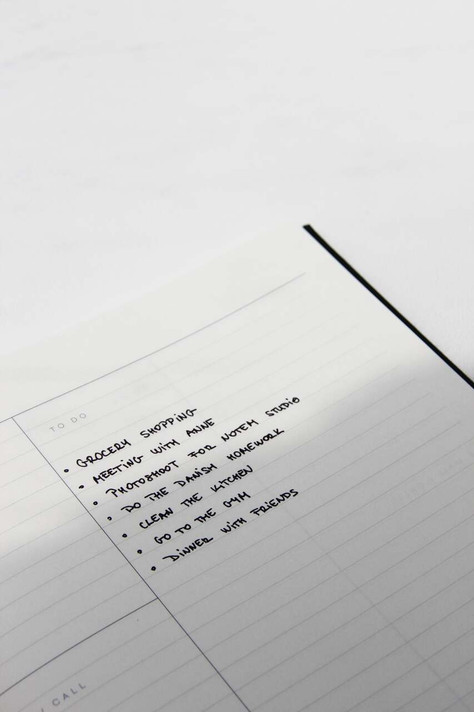 TO DO
• GROCERY SHOPPING
• MEETING WITH ANNE
• PHOTOSHOOT FOR NOTEM STUDIO
• DO THE DANISH HOMEWORK
• CLEAN THE KITCHEN
• GO TO THE GYM
• DINNER WITH FRIENDS
CALL